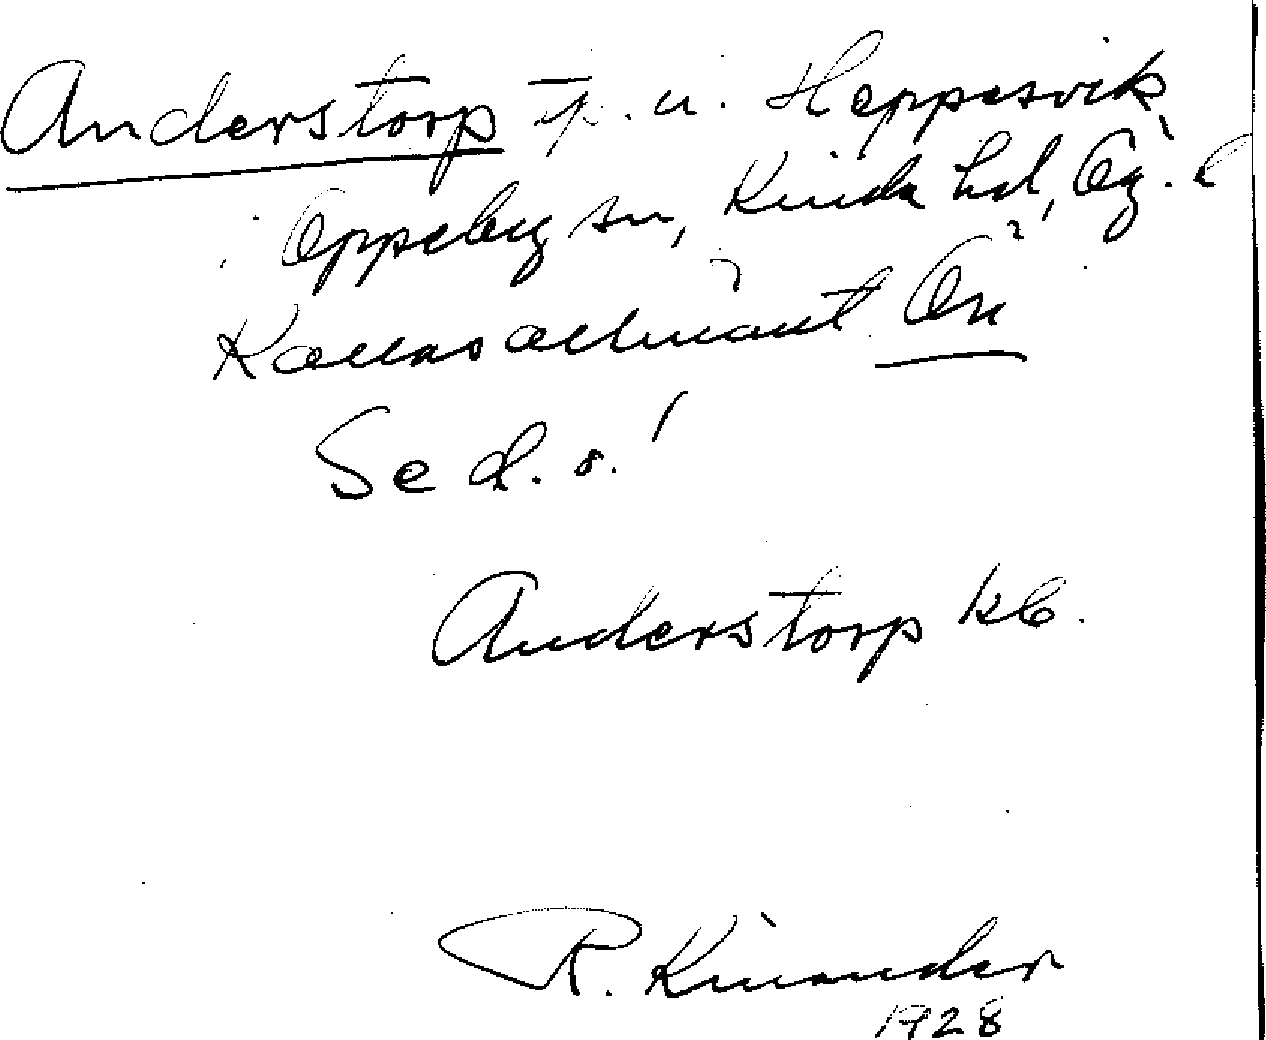 Anderstorp tp. u. Heppesvik
i Oppeby sn, Kinda hd, Ög. l
Kallas allmänt Ön
Se d. o.!
Anderstorp kb.
R. Kinander
1928